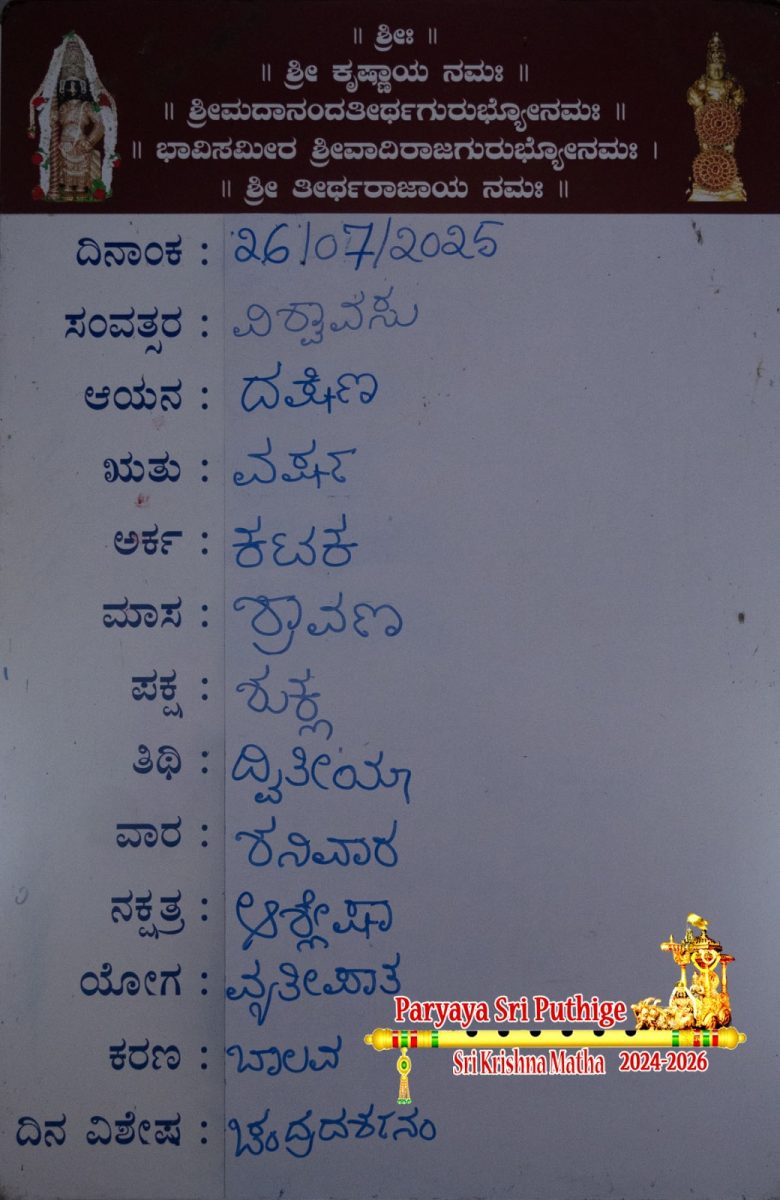 ॥ ಶ್ರೀಃ ॥
॥ ಶ್ರೀ ಕೃಷ್ಣಾಯ ನಮಃ ॥
॥ ಶ್ರೀಮದಾನಂದತೀರ್ಥಗುರುಭ್ಯೋನಮಃ ॥
॥ ಭಾವಿಸಮೀರ ಶ್ರೀವಾದಿರಾಜಗುರುಭ್ಯೋನಮಃ ।
॥ ಶ್ರೀ ತೀರ್ಥರಾಜಾಯ ನಮಃ ॥
ದಿನಾಂಕ : 26/07/2025
ಸಂವತ್ಸರ : ವಿಶ್ವಾವಸು
ಆಯನ : ದಕ್ಷಿಣ
ಋತು : ವರ್ಷ
ಅರ್ಕ : ಕಟಕ
ಮಾಸ : ಶ್ರಾವಣ
ಪಕ್ಷ : ಶುಕ್ಲ
ತಿಥಿ : ದ್ವಿತೀಯಾ
ವಾರ : ಶನಿವಾರ
ನಕ್ಷತ್ರ : ಆಶ್ಲೇಷಾ
ಯೋಗ : ವ್ಯತೀಪಾತ
ಕರಣ : ಬಾಲವ
ದಿನ ವಿಶೇಷ : ಚಂದ್ರದರ್ಶನಂ
Paryaya Sri Puthige
Sri Krishna Matha 2024-2026